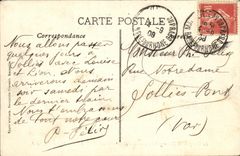 CARTE POSTALE
Correspondance
Nous allons passer
quelques jours à
Solliès avec Louise
et Léon. Nous
arriverons demain
soir samedi par
le dernier train
Nous t'embrassons
de tout notre cœur
Monsieur
Rue Notre Dame
Solliès-Pont
(Var)